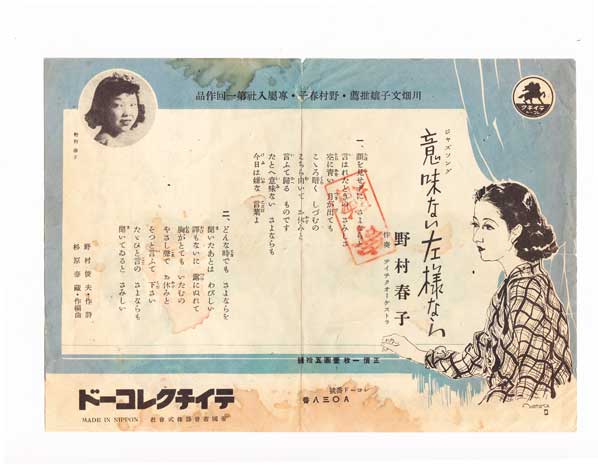 川畑文子孃推薦・野村春子・專屬入社第一回作品
テイチク
ジャズソング
意味ない左様なら
野村春子
伴奏 テイチクオーケストラ
一、
顔を見せずに さよならと
言はれたときの さみしさ
空に青い 月が出ても
こゝろ暗く しづむの
こちら向いて お休みと
言ふて歸る ものです
たとへ意味ない さよならも
今日は嫌な 言葉よ
二、
どんな時でも さよならを
聞いたあとは わびしい
譯もないに 露にぬれて
胸がとても いたむの
やさし聲で お休みと
そつと言ふて 下さい
たゞひと言の さよならも
聞いてゐると さみしい
野村俊夫・作詩
杉原泰藏・作編曲
野村春子
正價一枚壹圓五拾錢
レコード番號
A〇三八番
テイチクレコード
MADE IN NIPPON
帝國蓄音器株式會社